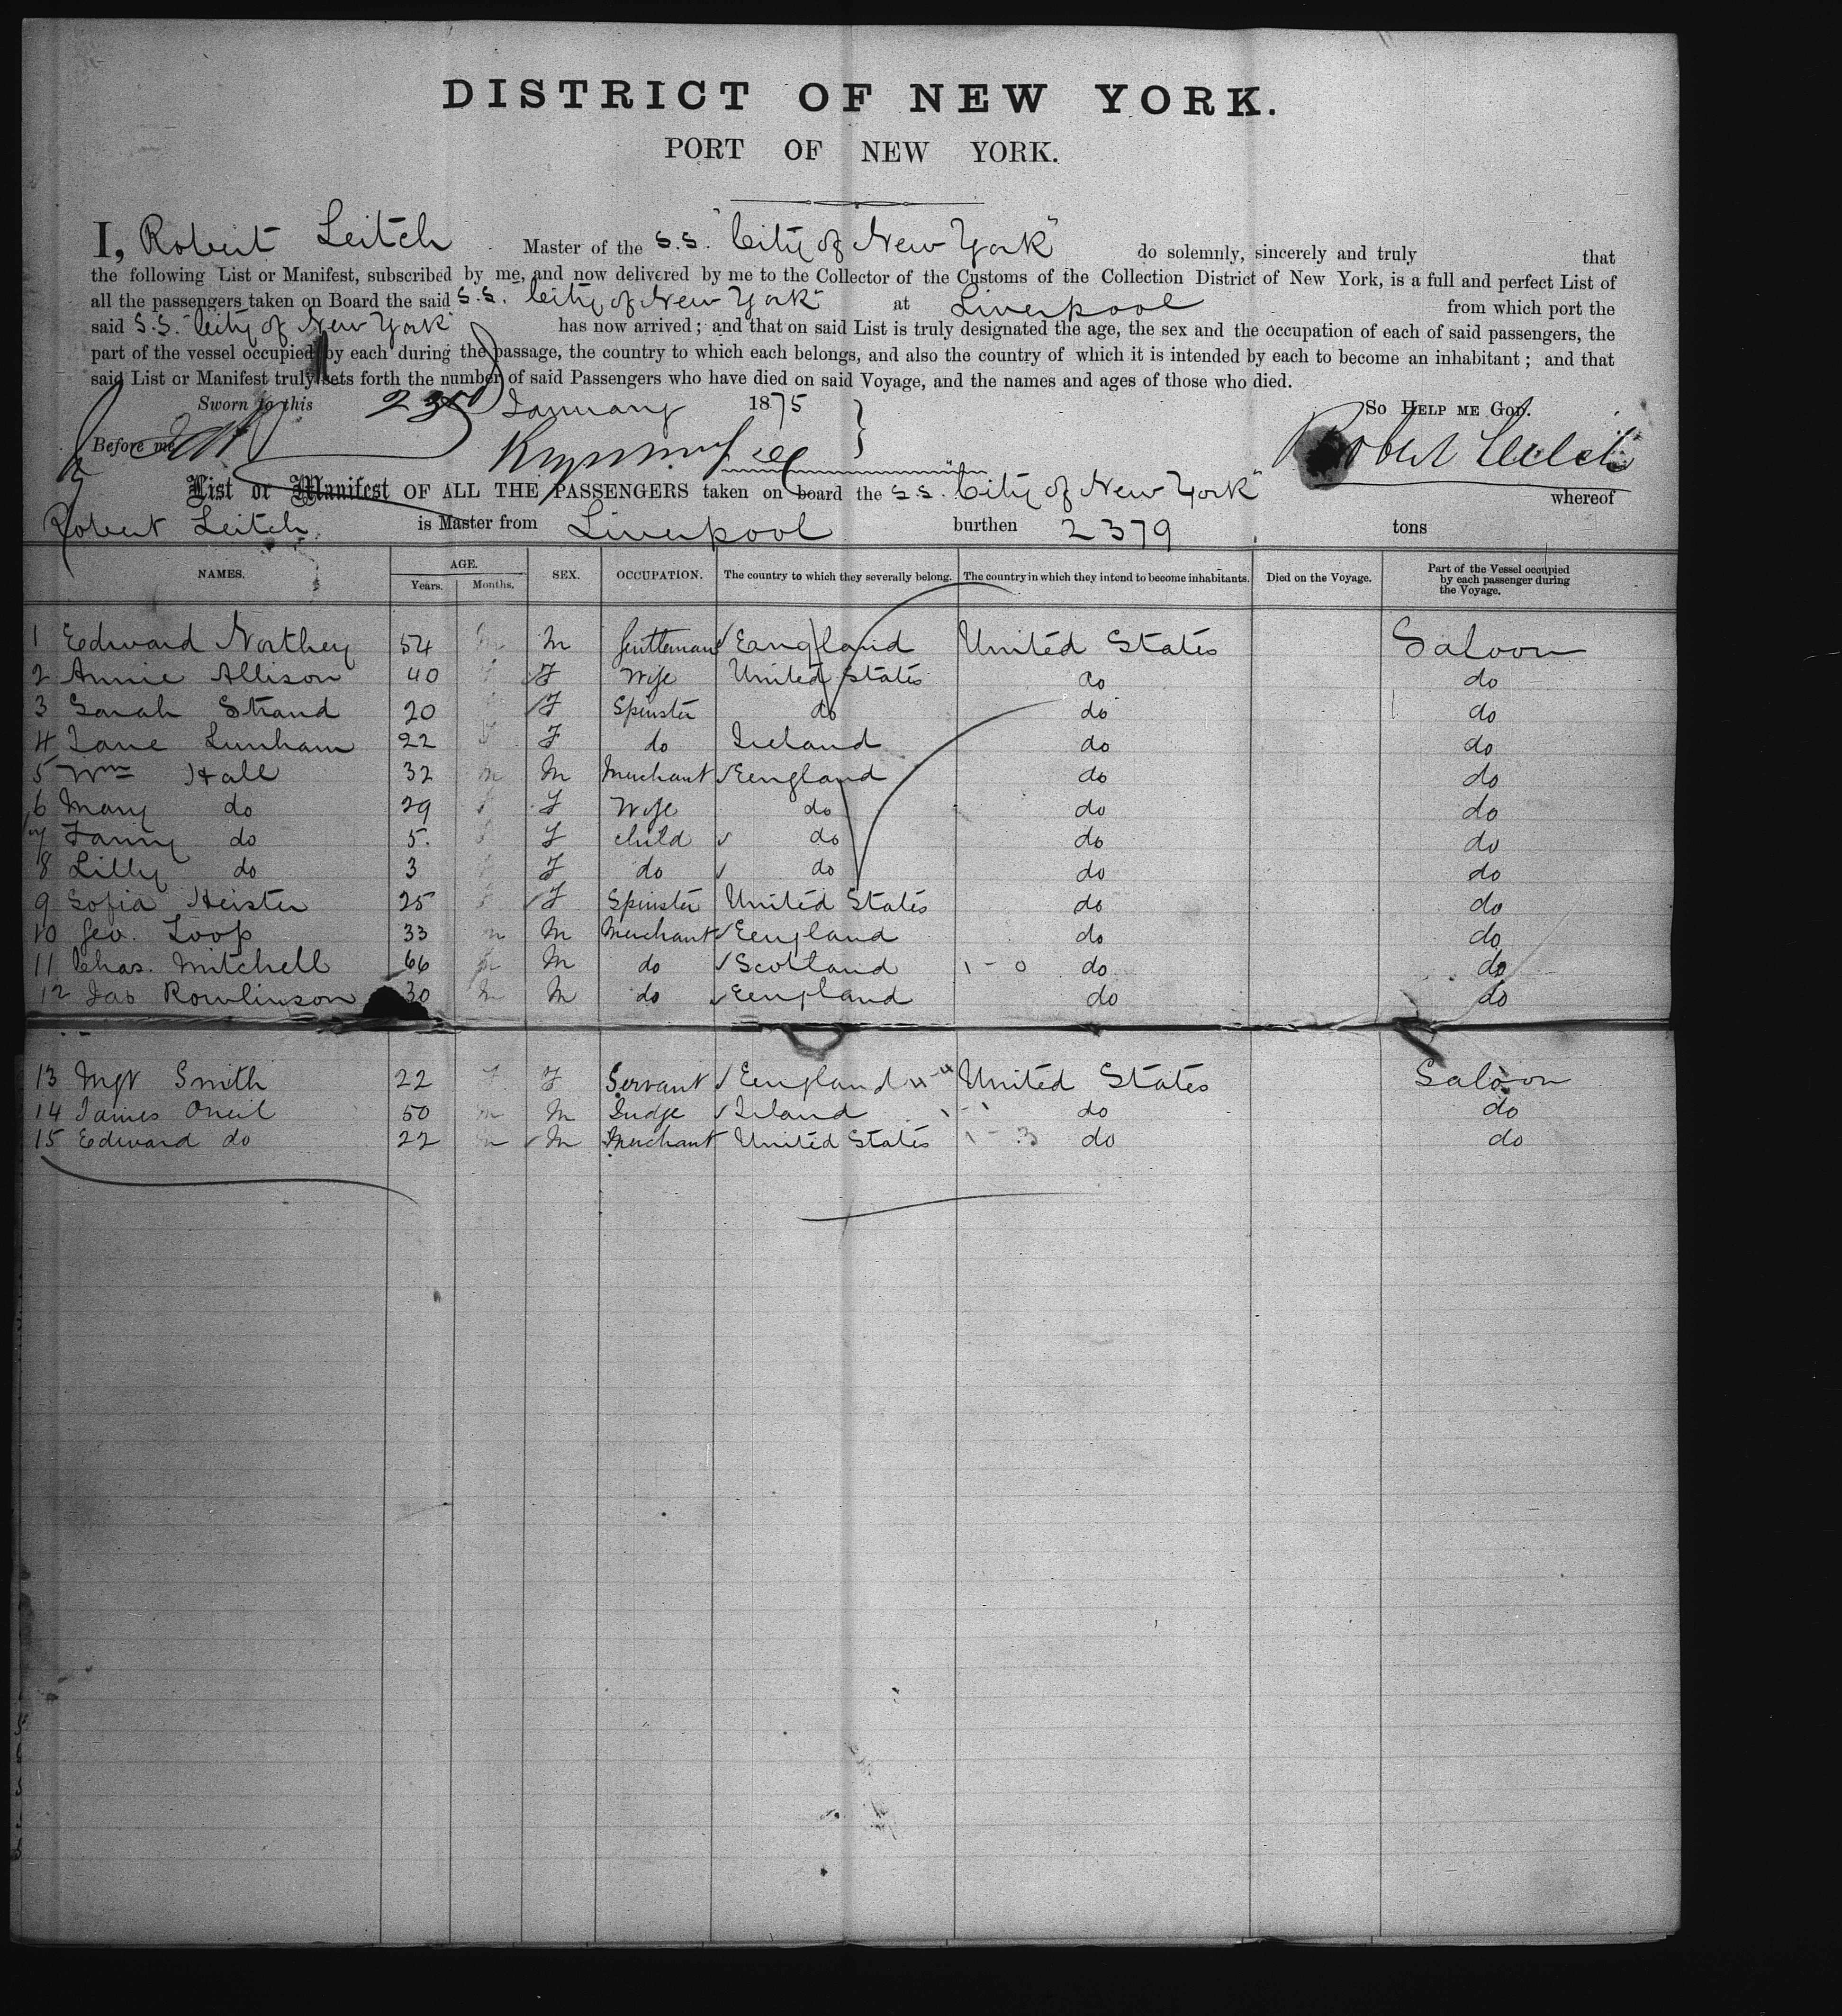 DISTRICT OF NEW YORK.
PORT OF NEW YORK.
I, Robert Leitch Master of the S.S. "City of New York" do solemnly, sincerely and truly that
the following List or Manifest, subscribed by me, and now delivered by me to the Collector of the Customs of the Collection District of New York, is a full and perfect List of
all the passengers taken on Board the said S.S. "City of New York" at Liverpool from which port the
said S.S. "City of New York" has now arrived; and that on said List is truly designated the age, the sex and the occupation of each of said passengers, the
part of the vessel occupied by each during the passage, the country to which each belongs, and also the country of which it is intended by each to become an inhabitant; and that
said List or Manifest truly sets forth the number of said Passengers who have died on said Voyage, and the names and ages of those who died.
Sworn to this 23rd January 1875 So HELP ME GOD.
Before me Robert Leitch
List or Manifest OF ALL THE PASSENGERS taken on board the S.S. "City of New York" whereof
Robert Leitch is Master from Liverpool burthen 2379 tons
NAMES. AGE. Years. Months. SEX. OCCUPATION. The country to which they severally belong. The country in which they intend to become inhabitants. Died on the Voyage. Part of the Vessel occupied by each passenger during the Voyage.
1 Edward Northey 54 m M Gentleman England United States Saloon
2 Annie Allison 40 f F Wife United States do do
3 Sarah Strand 20 F Spinster do do do
4 Jane Lunham 22 f F do Ireland do do
5 Wm Hall 32 m M Merchant England do do
6 Mary do 29 f F Wife do do do
7 Fanny do 5. f F child do do do
8 Lilly do 3 f F do do do do
9 Sofia Heister 25 f F Spinster United States do do
10 Geo. Loop 33 m M Merchant England do do
11 Chas. Mitchell 66 m M do Scotland do do
12 Jas Rowlinson 30 m M do England do do
13 Mgt Smith 22 f F Servant England United States Saloon
14 James Oneil 50 m M Judge Ireland do do
15 Edward do 22 m M Merchant United States do do